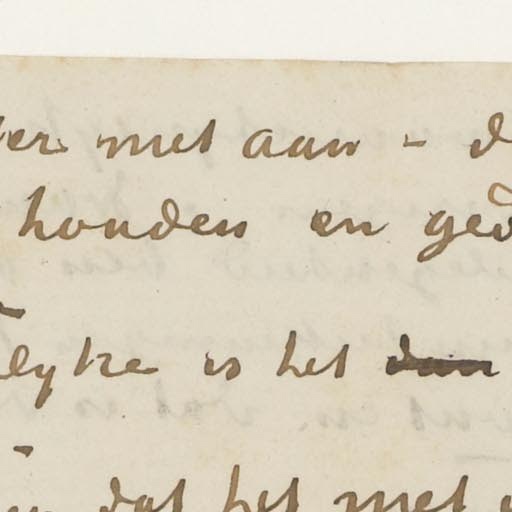 met aan - d
houden en ged
lyke is het dan
dat het met